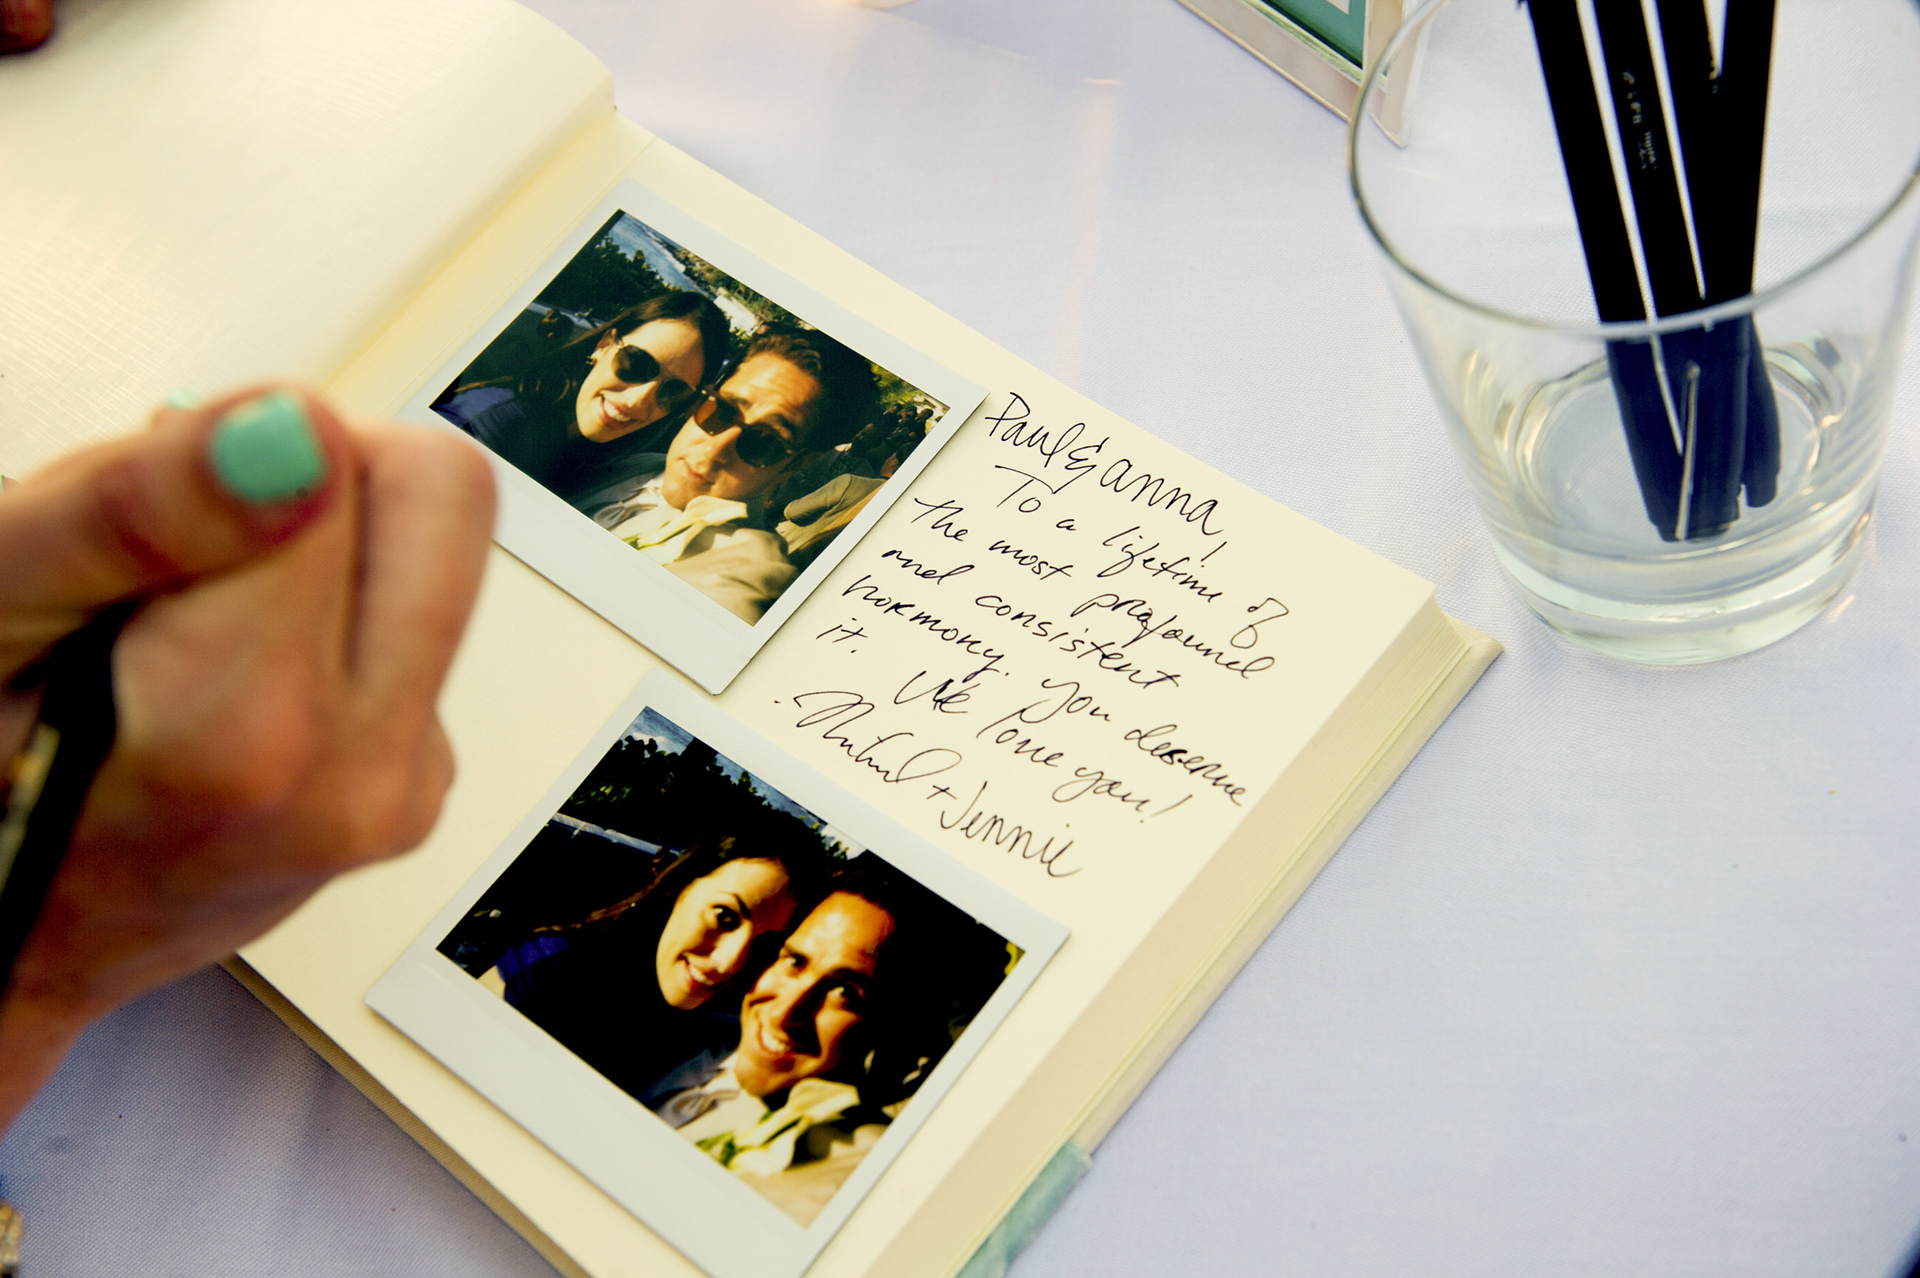 Paul & Anna,
To a lifetime of
the most profound
and consistent
harmony. You deserve
it. We love you!
- Michael + Jennie